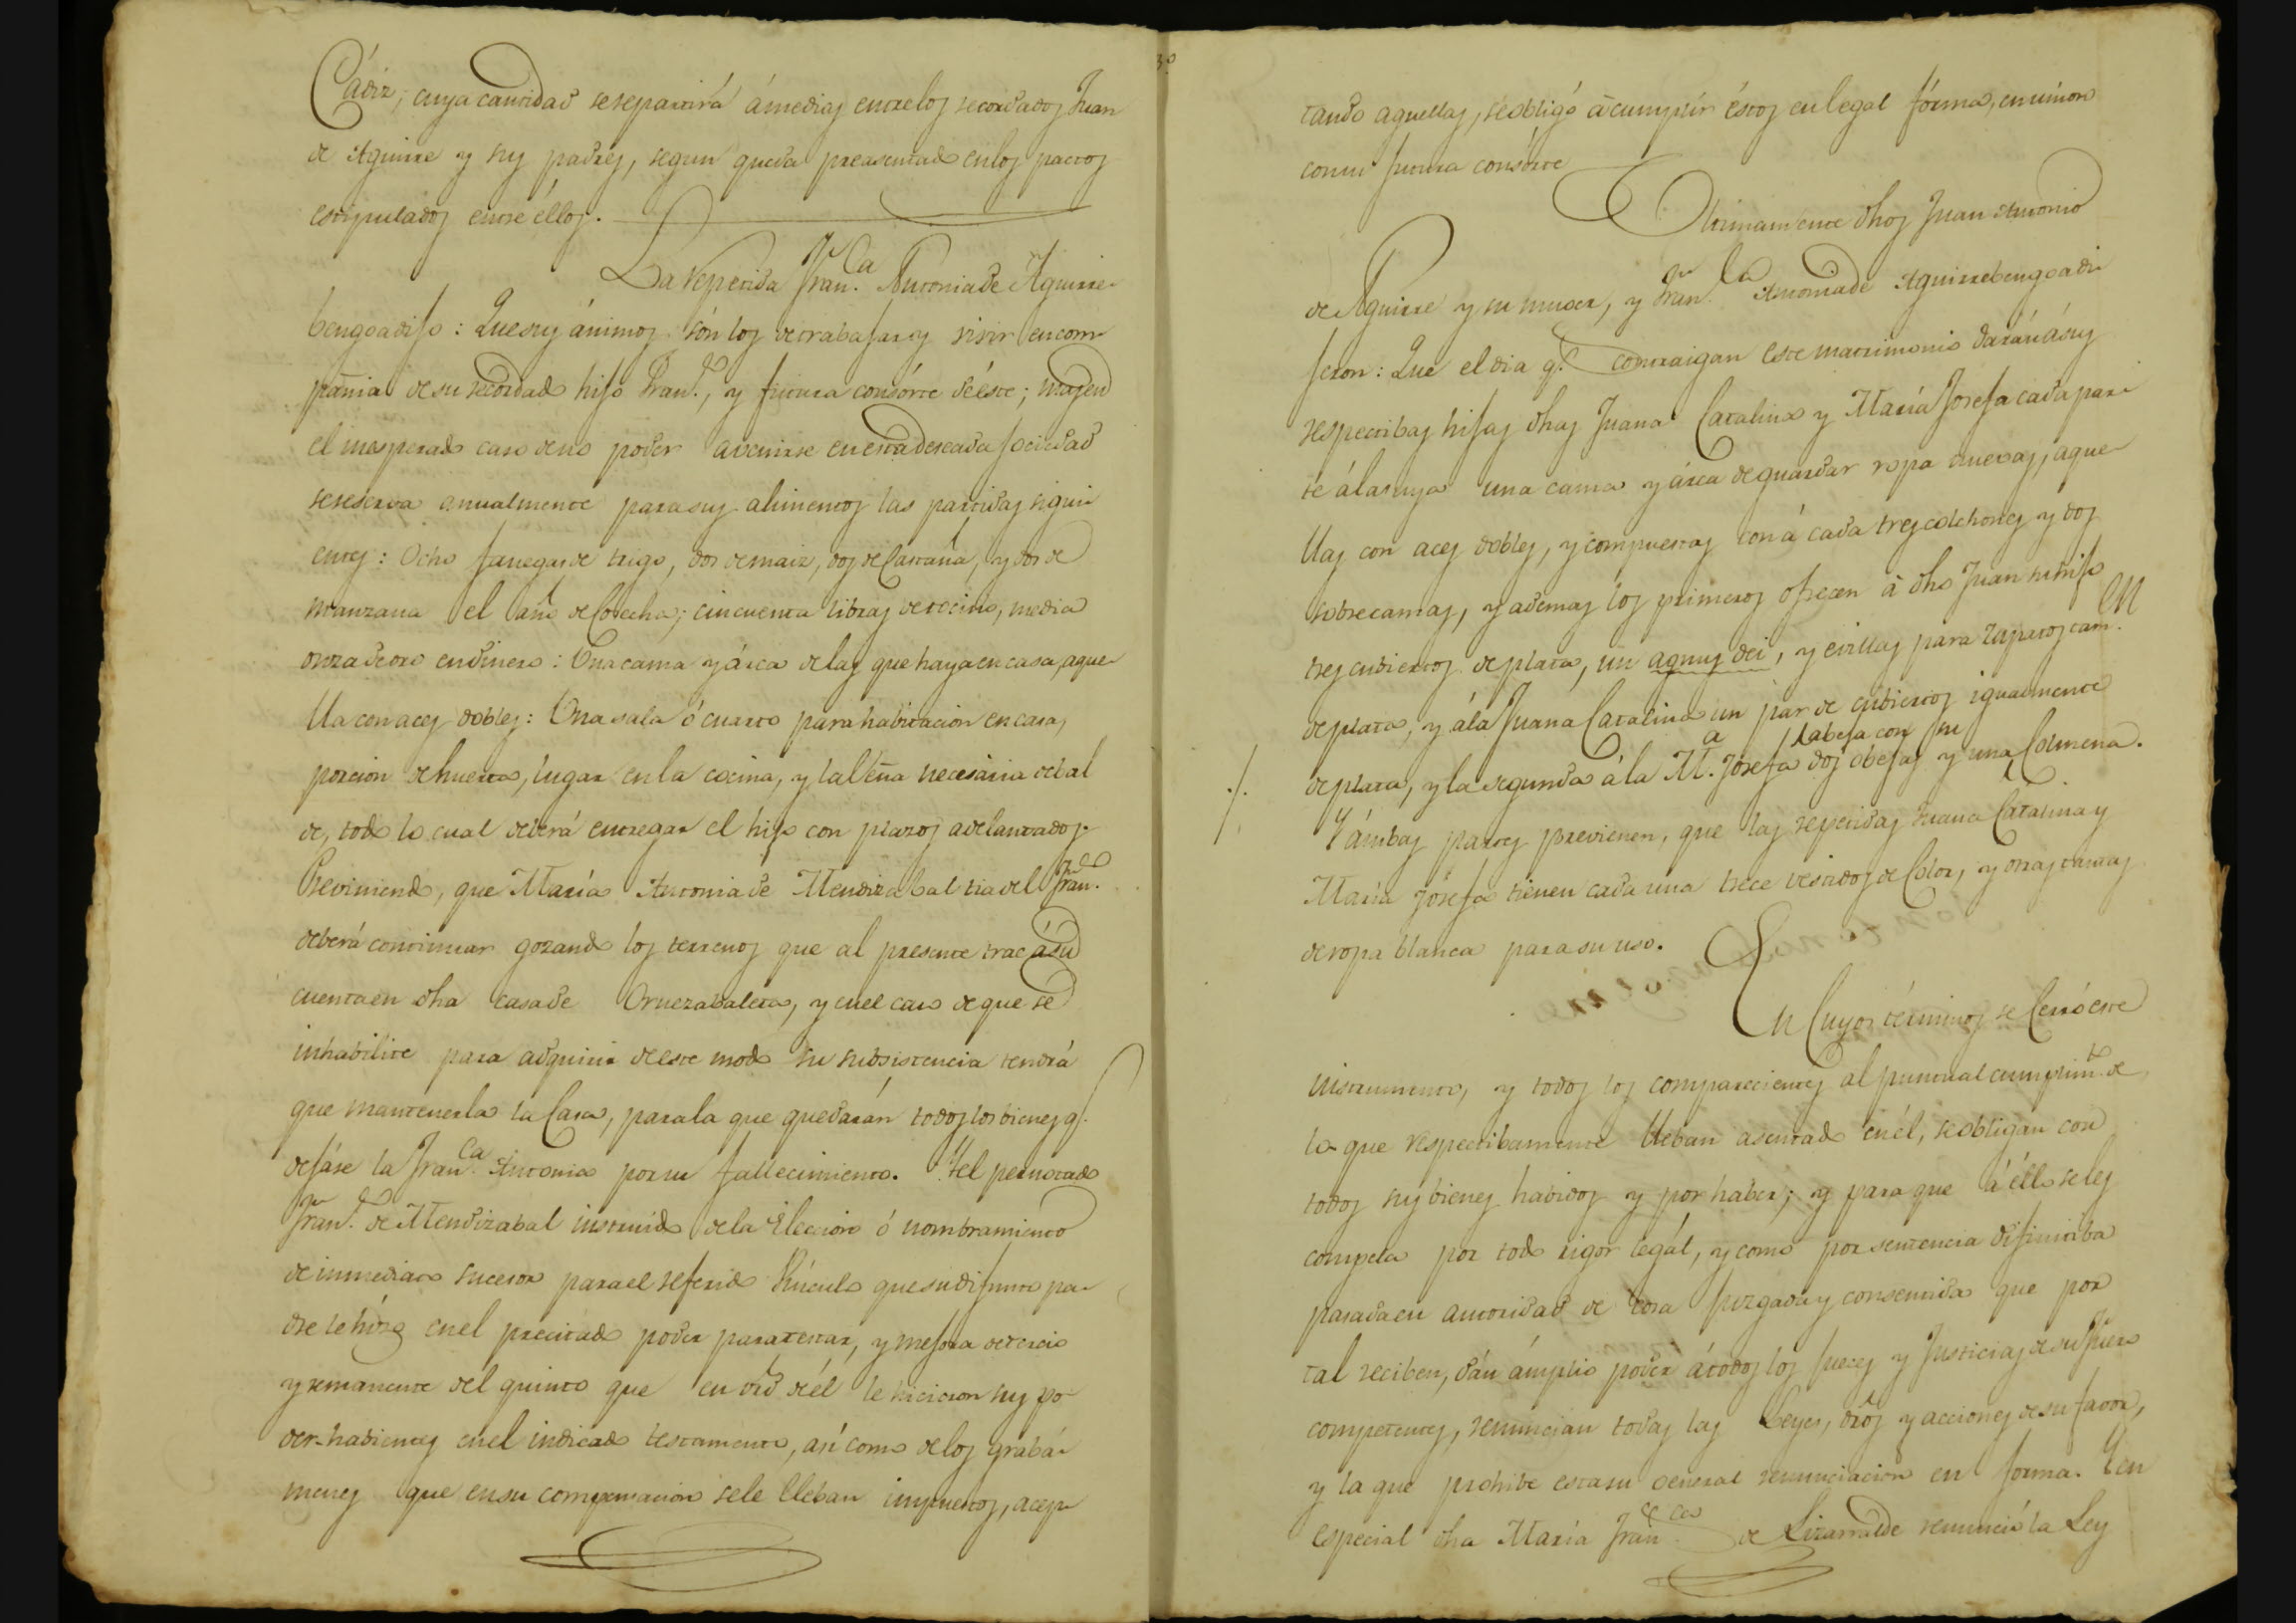 Cádiz, cuya cantidad serepartirá ámedias entrelos recordados Juan
de Aguirre y sus padres, segun queda preasentado enlos pactos
estipulados entre éllos.
La repetida Fran.ca Antoniade Aguirre-
bengoa dijo: Quesus ánimos són los detrabajar y vivir encom-
pañia desu recordado hijo Fran.co, y futura consórte deéste; masen
el inesperado caso deno poder avenirse enestadeseada sociedad
sereserva anualmente parasus alimentos las partidas sigui-
entes: Ocho fanegasde trigo, dos demaiz, dos deCastaña, y dos de
manzana el año deCosecha; cincuenta libras detocino, media
onzadeoro endinero: Unacama y árca delas que hayaencasa, aque-
lla con aces dobles: Unasala ó cuarto parahabitacion encasa,
porcion dehuerta, lugar enla cocina, y laleña necesária debal
de, todo lo cual deberá entregar el hijo con plazos adelantados.
Previniendo, que María Antoniade Mendizabal tiadel Fran.co
deberá continuar gozando los terrenos que al presente trae ásu
cuentaen dha casade Oruezabaleta, y enel caso deque se
inhabilite para adquirir deeste modo su subsistencia tendrá
que mantenerla la Casa, parala que quedarán todos losbienes q.e
dejáse la Fran.ca Antonia porsu fallecimiento. Yel pernotado
Fran.co de Mendizabal instruido dela Eleccion ó nombramiento
deinmediato sucesor parael referido Vínculo quesudifunto pa-
dre lehizo enel precitado poder paratestar, y mejora detercio
y remanente dél quinto que en vrd deél le hicieron sus po-
der-habientes enel indicado testamento, así como delos grabá-
menes que ensu compensacion sele lleban impuestos, acep-
tando aquellas, seobligó ácumplir éstos enlegal fórma, enunion
consu futura consórte
Ultimamente dhos Juan Antonio
de Aguirre y su muger, y Fran.ca Antoniade Aguirrebengoa di-
jeron: Que eldia q.e contraigan este matrimonio daránásus
respectibas hijas dhas Juana Catalina y María Josefa cadapar-
te álasuya una cama y árca deguardar ropa nuevas, aque-
llas con aces dobles, y compuestas con á cada tres colchones y dos
sobrecamas, y ademas los primeros ofrecen á dho Juan suhijo
tres cubiertos deplata, un agnus dei, y evillas para zapatos tam.en
deplata, y ála Juana Catalina un par de cubiertos igualmente
deplata, y la segunda á la M.a Josefa dos obejas y una Colmena.
labeja con su
./.
Y ámbas partes previenen, que las repetidas Juana Catalina y
María Josefa tienen cada una trece vestidos de Color, y otras tantas
deropa blanca para su uso.
En Cuyos términos se Cerró este
instrumento, y todos los comparecientes al puntual cumplim.to de
lo que respectibamente lleban asentado enél, seobligán con
todos sus bienes habidos y por haber; y para que á éllo seles
compela por todo rigor legál, y como por sentencia difinitiba
pasadaen autoridad de cosa juzgada y consentida que por
tal reciben, dán ámplio poder átodos los jueces y Justicias desu fuero
competentes, renuncian todas las Leyes, dros y acciones desu favor,
y la que prohibe estasu general renunciacion en forma. Yen
especial dha María Fran.ca de Lizarralde renunció la Ley